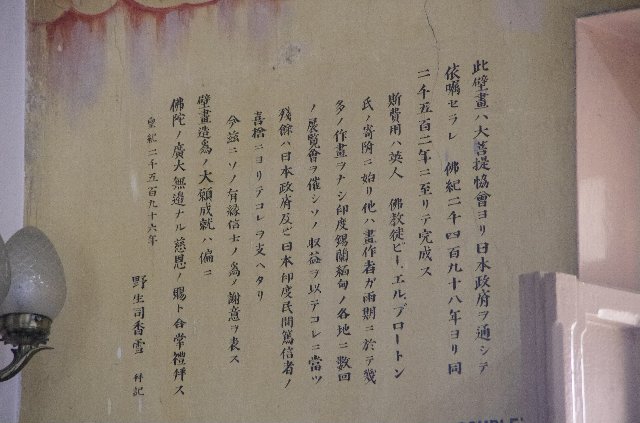 此壁畫ハ大菩提協會ヨリ日本政府ヲ通シテ
依囑セラレ 佛紀二千四百九十八年ヨリ同
二千五百二年ニ至リテ完成ス
斯費用ハ英人 佛教徒ビー、エル、ブロートン
氏ノ寄附ニ始リ他ハ畫作者ガ雨期ニ於テ幾
多ノ作畫ヲナシ印度錫蘭緬甸ノ各地ニ數回
ノ展覧會ヲ催シソノ収益ヲ以テコレニ當ツ
殘餘ハ日本政府及ビ日本印度民間篤信者ノ
喜捨ニヨリテコレヲ支ヘタリ
今茲ニソノ有縁信士ノ爲メ謝意ヲ表ス
壁畫造爲ノ大願成就ハ偏ニ
佛陀ノ廣大無邊ナル慈恩ノ賜ト合掌禮拝ス
皇紀二千五百九十六年
野生司香雪 拝記